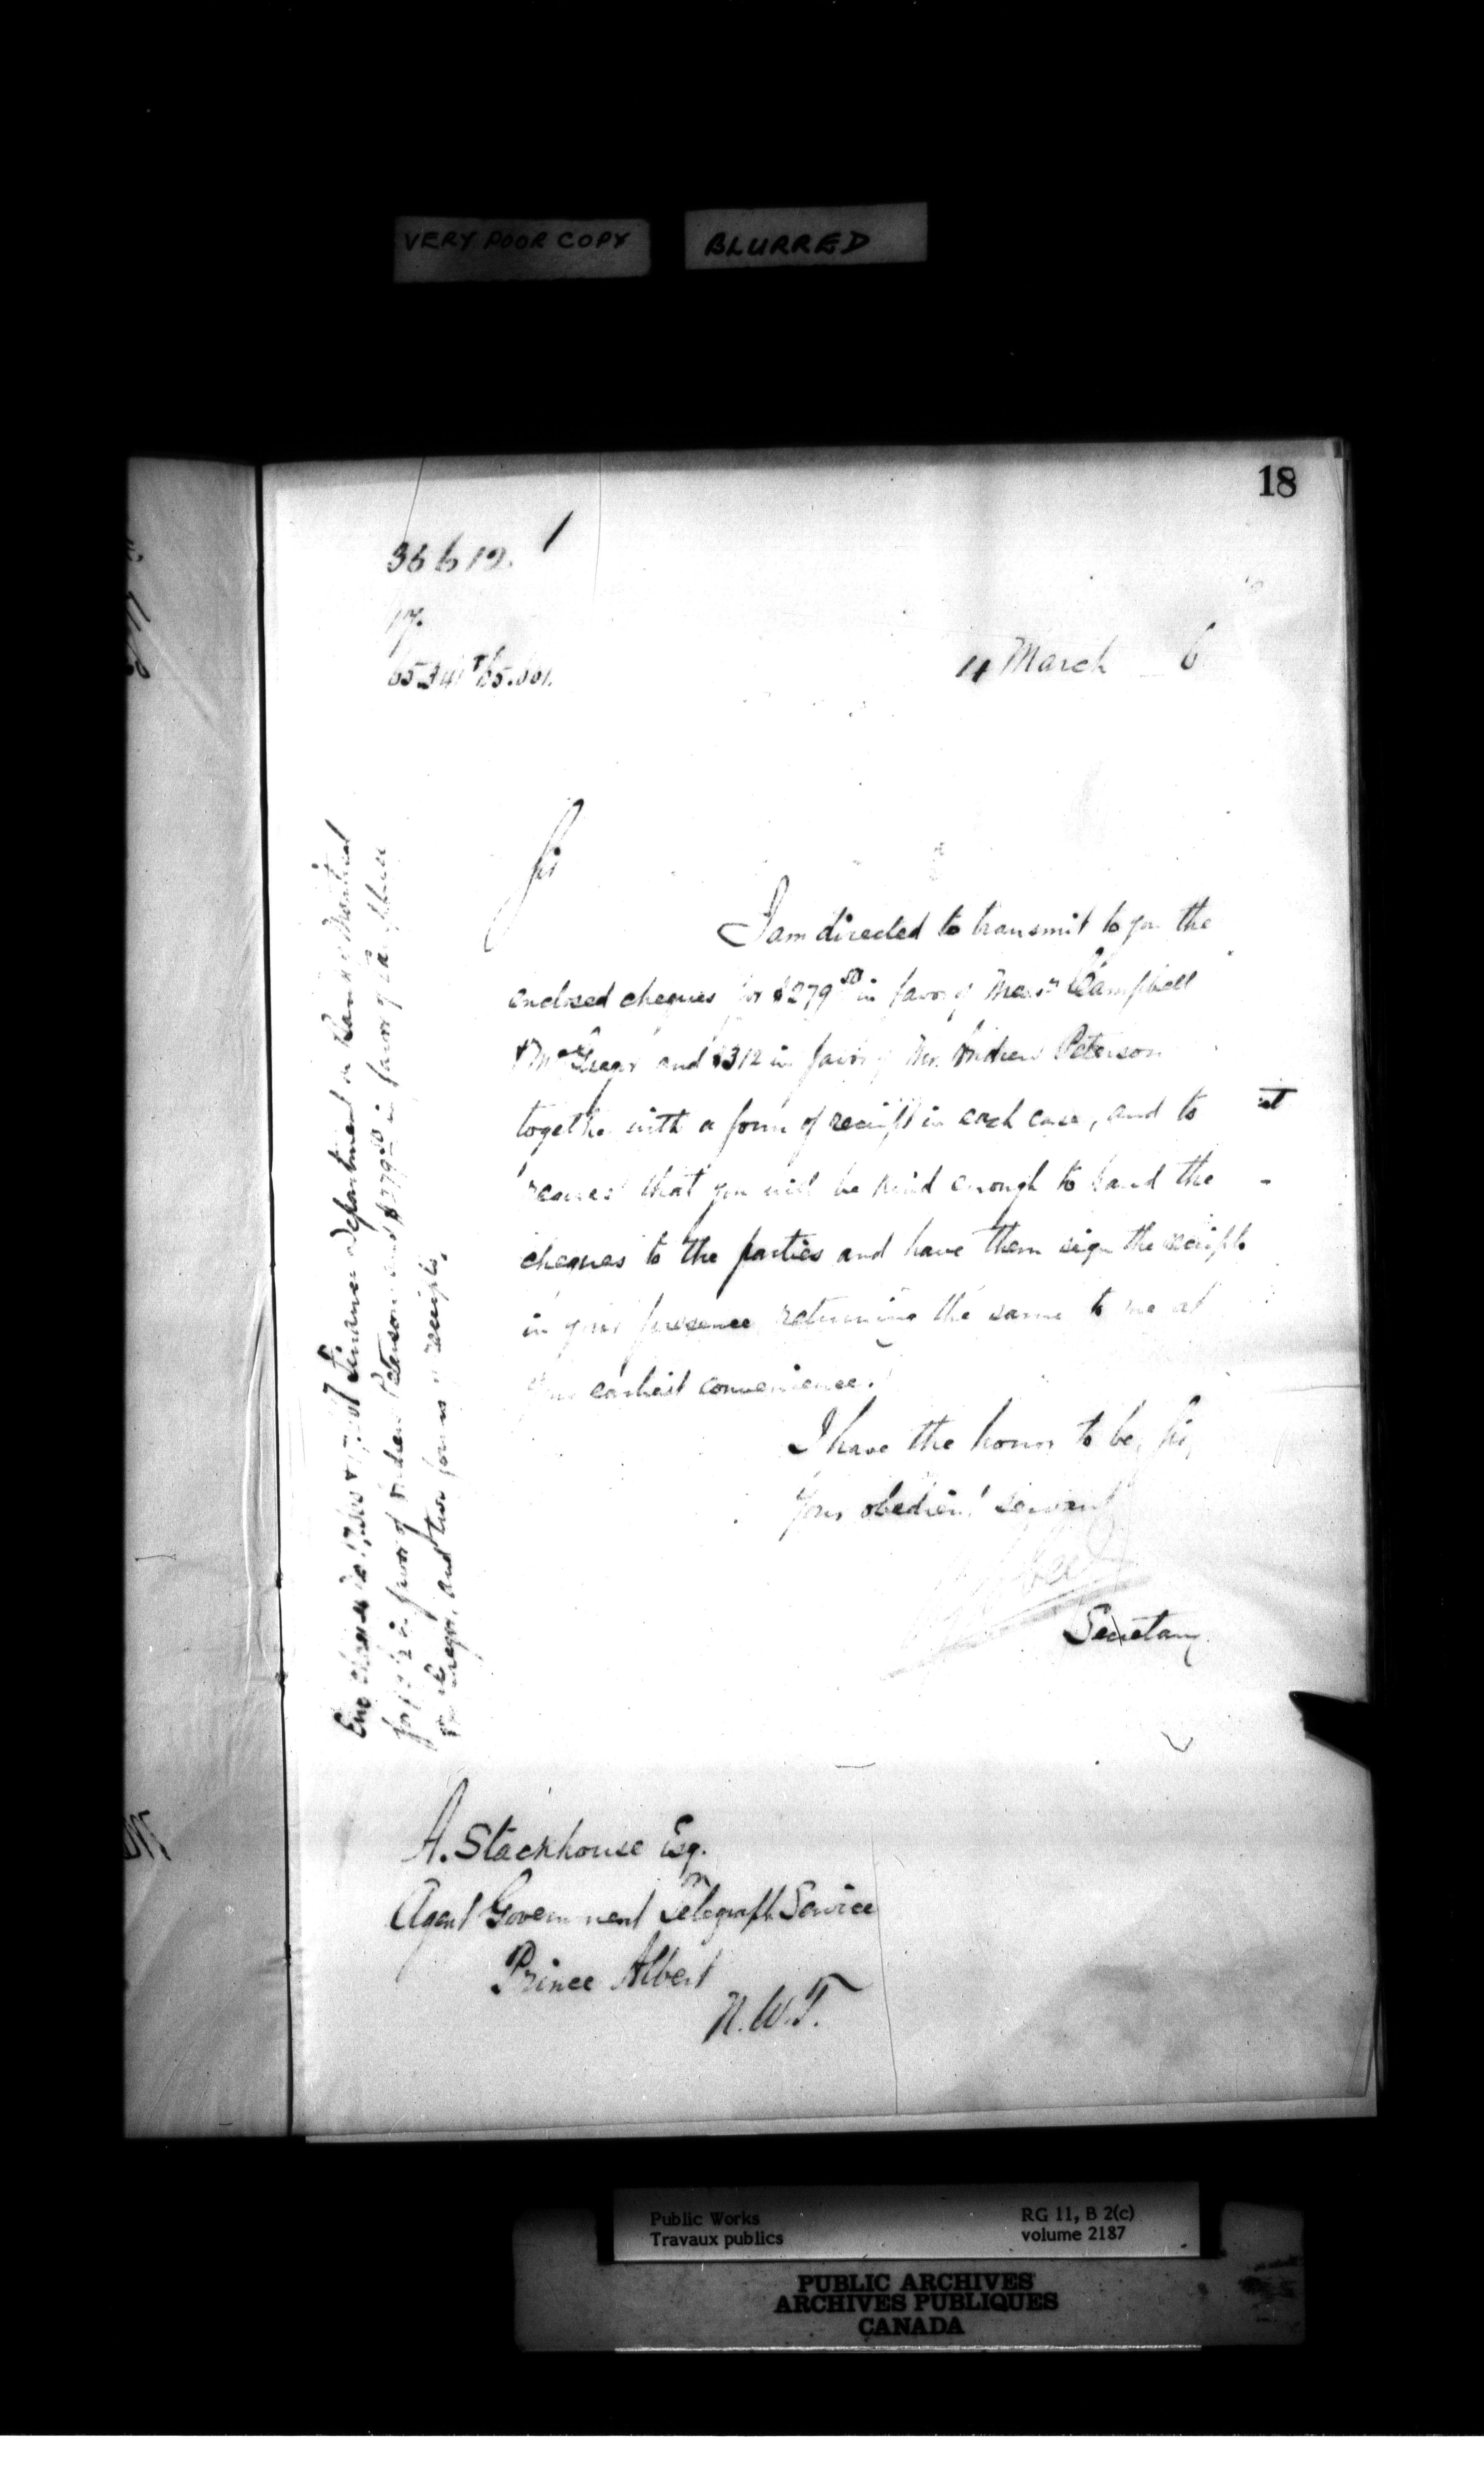 VERY POOR COPY
BLURRED
18
36612.
4 March 6
Sir
I am directed to transmit to you the
enclosed cheques for $279 50 in favor of Messrs Campbell
& McGregor and $312 in favor of Mr. Andrew Peterson
together with a form of receipt in each case, and to
request that you will be kind enough to hand the
cheques to the parties and have them sign the receipts
in your presence returning the same to me at
your earliest convenience.
I have the honor to be, Sir,
Your obedient servant
Secretary.
Finance department on Bank of Montreal
in favor of Andrew Peterson and $279 50 in favor of Campbell
& McGregor, and two forms of receipts.
A. Stackhouse Esq.
Agent Government Telegraph Service
Prince Albert
N.W.T.
Public Works
Travaux publics
RG 11, B 2(c)
volume 2187
PUBLIC ARCHIVES
ARCHIVES PUBLIQUES
CANADA